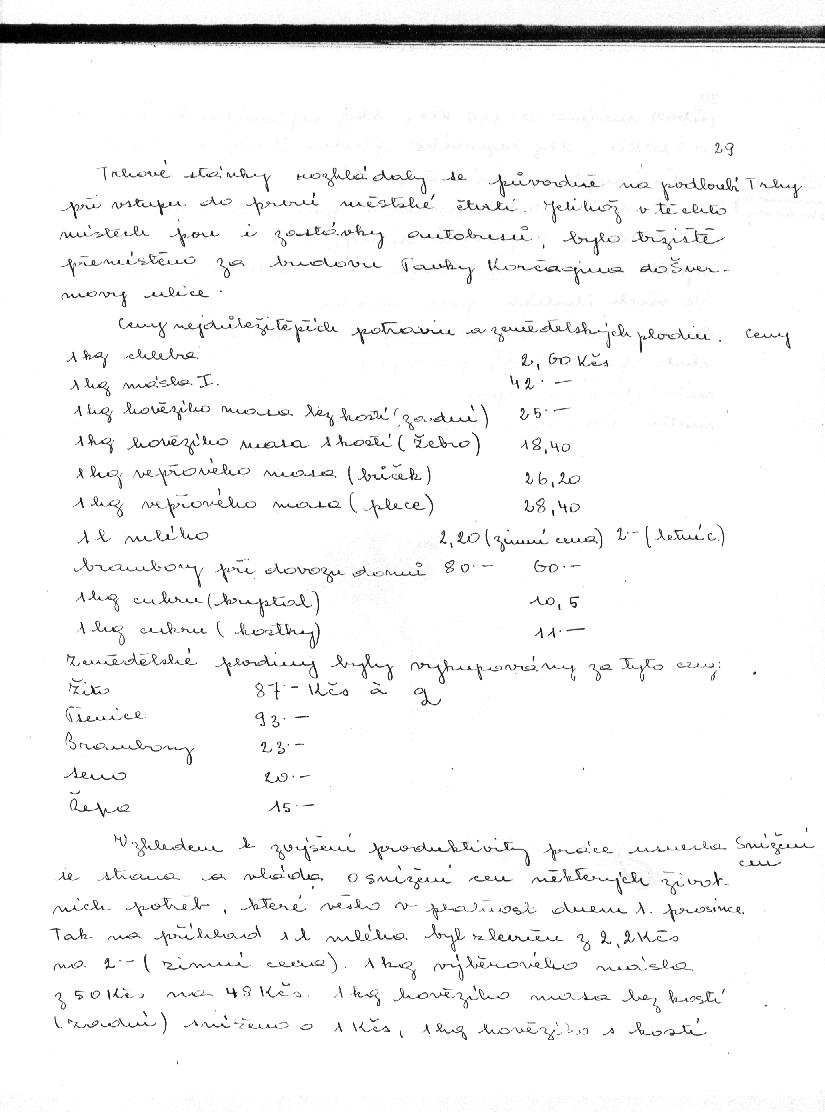 29
Trhové stánky rozkládaly se původně na podloubí Trhy
při vstupu do první městské čtvrti. Jelikož v těchto
místech jsou i zastávky autobusů, bylo tržiště
přemístěno za budovu Pavky Korčagina do Šver-
movy ulice.
Ceny nejdůležitějších potravin a zemědelských plodin. Ceny
1 kg chleba 2,60 Kčs
1 kg másla I. 42.—
1 kg hovězího masa bez kostí (zadní) 25.—
1 kg hovězího masa s kostí (žebro) 18,40
1 kg vepřového masa (bůček) 26,20
1 kg vepřového masa (plece) 28,40
1 l mléko 2,20 (zimní cena) 2.— (letní c.)
brambory při dovozu domů 80.— 60.—
1 kg cukru (krystal) 10,5
1 kg cukru (kostky) 11.—
Zemědělské plodiny byly vykupovány za tyto ceny:
Žito 87.— Kčs à q
Pšenice 93.—
Brambory 23.—
seno 20.—
Řepa 15.—
Vzhledem k zvýšení produktivity práce usnesla Snížení
se strana a vláda o snížení cen některých život- cen
ních potřeb, které vešlo v platnost dnem 1. prosince.
Tak na příklad 1 l mléka byl zlevněn z 2,2 Kčs
na 2.— (zimní cena). 1 kg výběrového másla
z 50 Kčs na 48 Kčs. 1 kg hovězího masa bez kostí
(zadní) sníženo o 1 Kčs, 1 kg hovězího s kostí